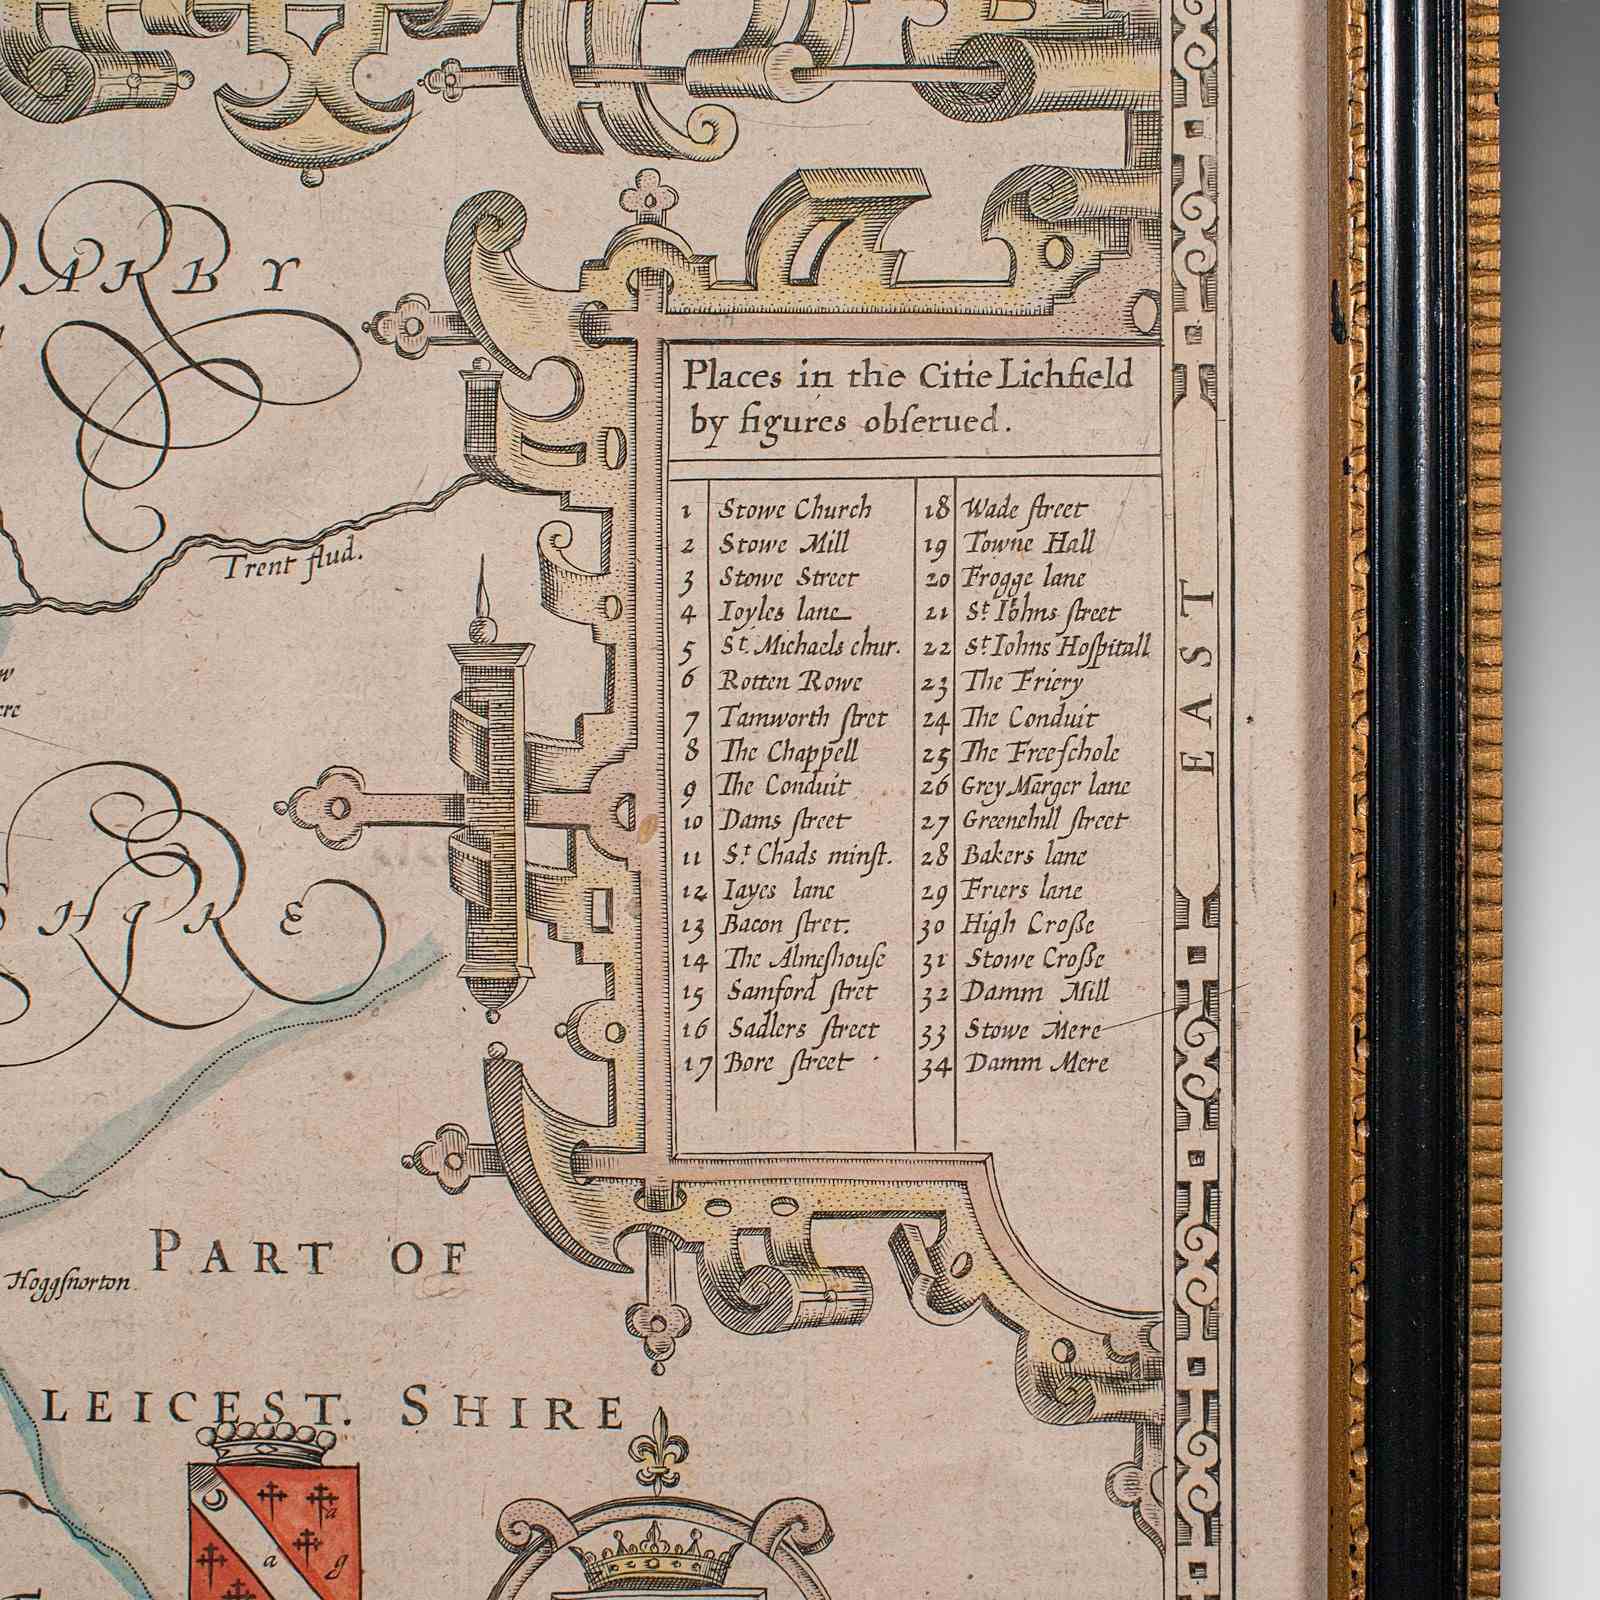 DARBY
Trent flud.
Places in the Citie Lichfield
by figures obſerued.
1 Stowe Church
2 Stowe Mill
3 Stowe Street
4 Ioyles lane
5 St. Michaels chur.
6 Rotten Rowe
7 Tamworth ſtret
8 The Chappell
9 The Conduit
10 Dams ſtreet
11 St Chads minſt.
12 Iayes lane
13 Bacon ſtret.
14 The Almeſhouſe
15 Samford ſtret
16 Sadlers ſtreet
17 Bore ſtreet
18 Wade ſtreet
19 Towne Hall
20 Frogge lane
21 St Iohns ſtreet
22 St Iohns Hoſpitall
23 The Friery
24 The Conduit
25 The Freeſchole
26 Grey Marger lane
27 Greenehill ſtreet
28 Bakers lane
29 Friers lane
30 High Croſse
31 Stowe Croſse
32 Damm Mill
33 Stowe Mere
34 Damm Mere
EAST
SHIRE
PART OF
Hoggſnorton
LEICEST. SHIRE
a
a g